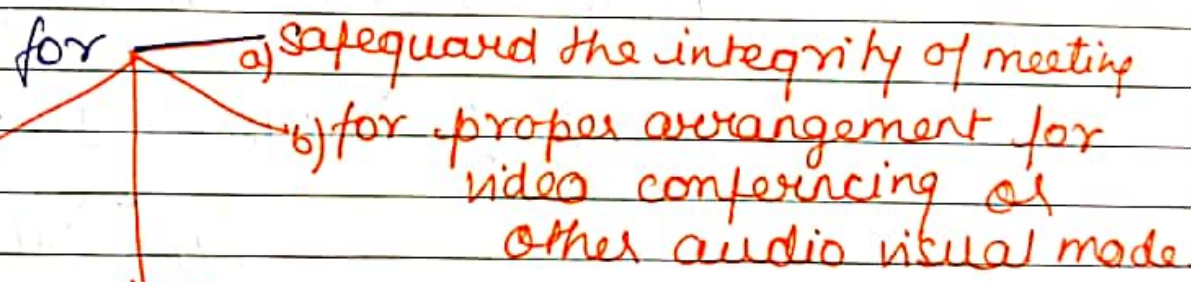 for a) safeguard the integrity of meeting
b) for proper arrangement for
video conferincing or
other audio visual mode